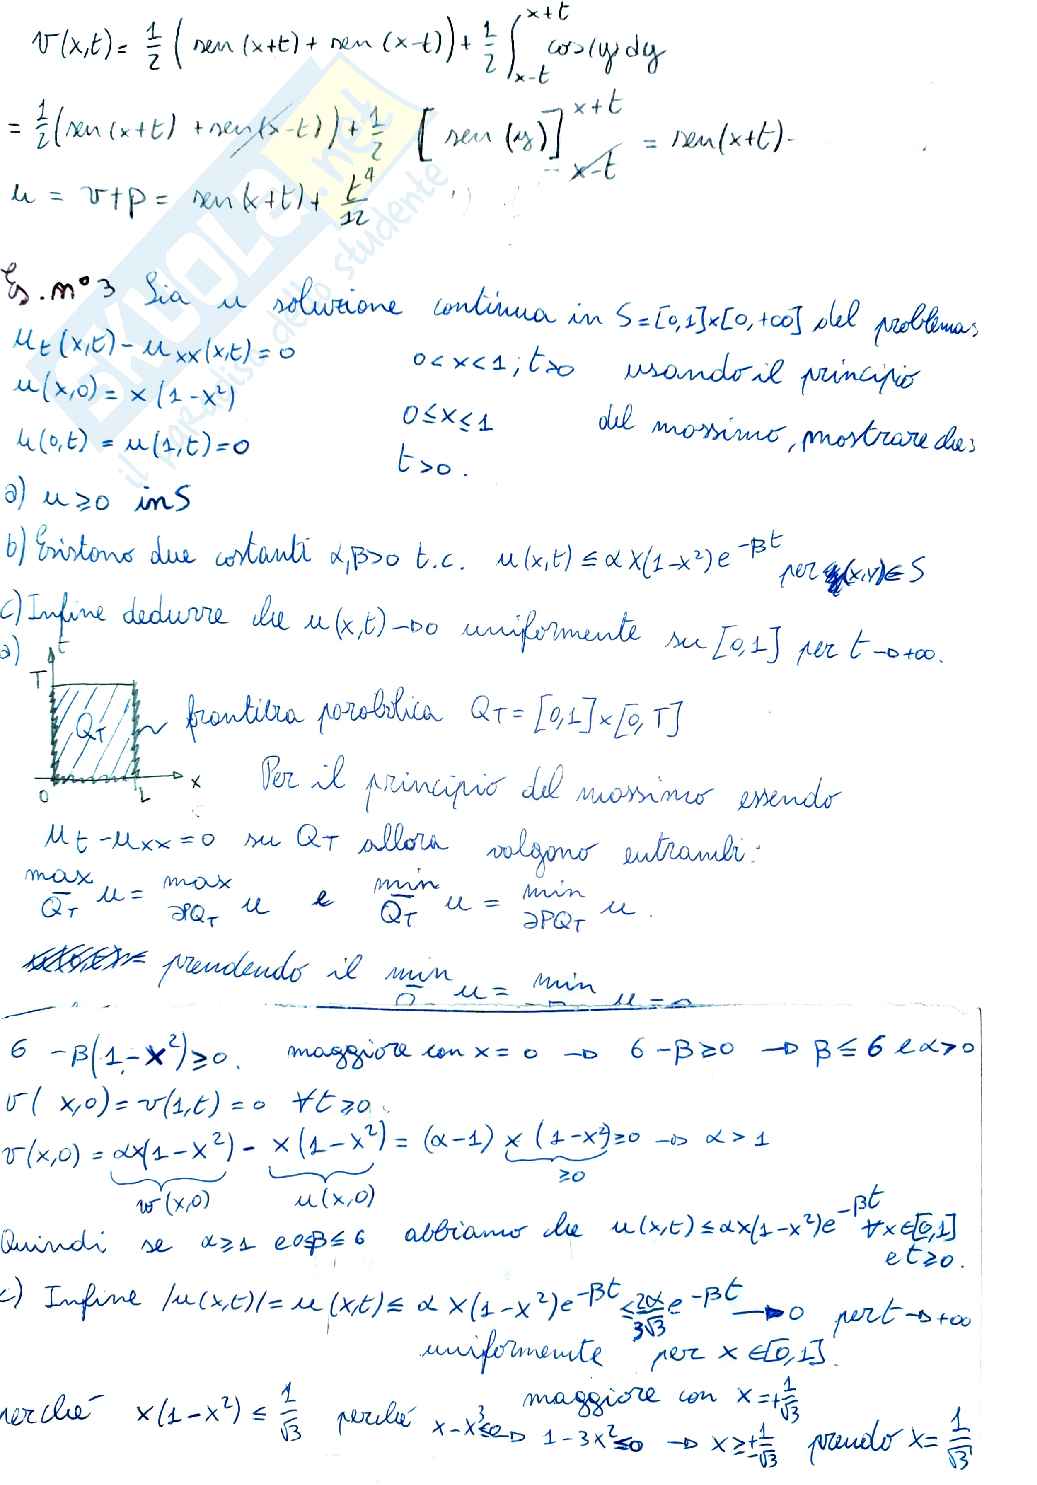 v(x,t) = 1/2 ( sen (x+t) + sen (x-t)) + 1/2 ∫_{x-t}^{x+t} cos(y) dy
= 1/2 (sen (x+t) + sen(x-t)) + 1/2 [ sen (y) ]_{x-t}^{x+t} = sen(x+t).
u = v+p = sen(x+t) + t^4/12
Es. n° 3 Sia u soluzione continua in S = [0,1]×[0,+∞] del problema:
u_t(x,t) - u_xx(x,t) = 0 0<x<1; t>0 usando il principio
u(x,0) = x(1-x²) 0≤x≤1 del massimo, mostrare che:
u(0,t) = u(1,t) = 0 t>0.
a) u ≥ 0 in S
b) Esistono due costanti α,β>0 t.c. u(x,t) ≤ α x(1-x²) e^{-βt} per (x,y) ∈ S
c) Infine dedurre che u(x,t) → 0 uniformemente su [0,1] per t→+∞.
a) t
T
Q_T frontiera parabolica Q_T = [0,1]×[0,T]
0 L x
Per il principio del massimo essendo
u_t - u_xx = 0 su Q_T allora valgono entrambi:
max_{Q̄_T} u = max_{∂PQ_T} u e min_{Q̄_T} u = min_{∂PQ_T} u.
prendendo il min u = min u = 0
6 - β(1-x²) ≥ 0. maggiore con x = 0 → 6-β ≥ 0 → β ≤ 6 e α>0
v( x,0) = v(1,t) = 0 ∀t≥0.
v(x,0) = αx(1-x²) - x(1-x²) = (α-1) x (1-x²) ≥0 → α > 1
w(x,0) u(x,0) ≥0
Quindi se α≥1 e 0≤β≤6 abbiamo che u(x,t) ≤ αx(1-x²)e^{-βt} ∀x∈[0,1]
e t≥0.
c) Infine |u(x,t)| = u(x,t) ≤ α x(1-x²)e^{-βt} ≤ 2α/3√3 e^{-βt} → 0 per t→+∞
uniformemente per x∈[0,1].
maggiore con x=+1/√3
perché x(1-x²) ≤ 1/√3 perché x-x³≤0 → 1-3x²≤0 → x≥±1/√3 prendo x=1/√3